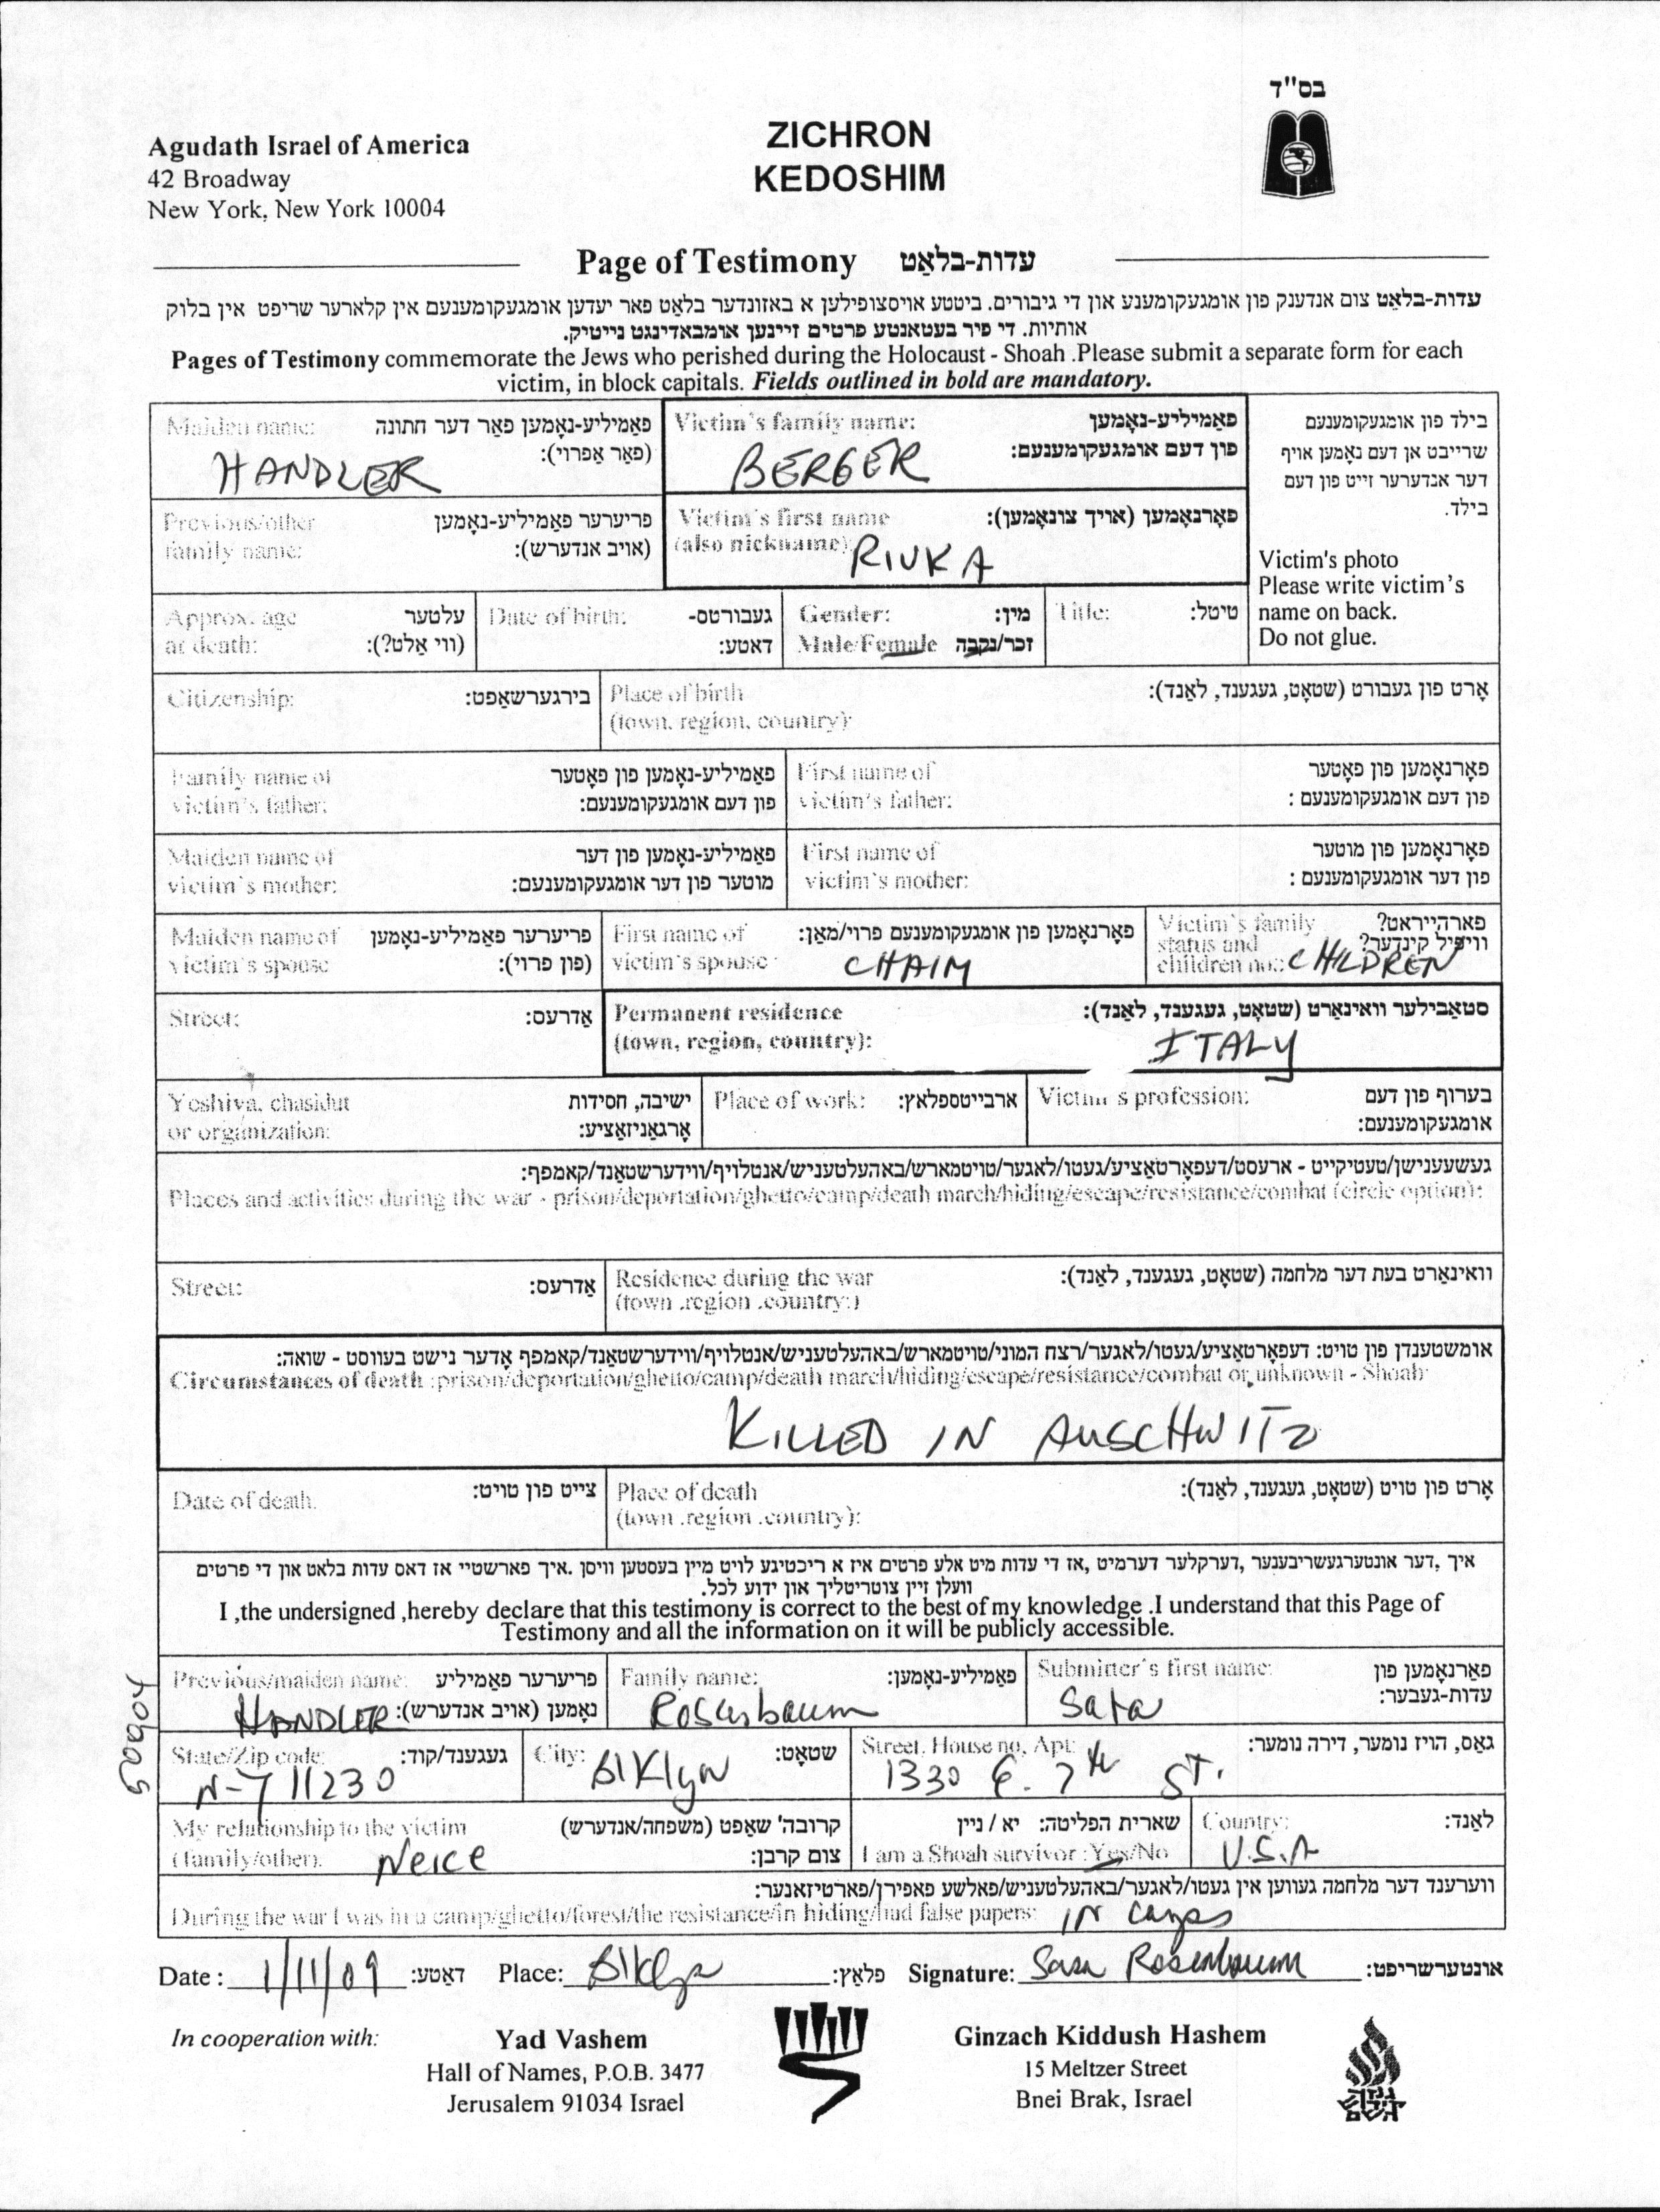 בס"ד
Agudath Israel of America
42 Broadway
New York, New York 10004
ZICHRON
KEDOSHIM
Page of Testimony עדות-בלאַט
עדות-בלאַט צום אנדענק פון אומגעקומענע און די גיבורים. ביטטע אויסצופילען א באזונדער בלאַט פאר יעדען אומגעקומענעם אין קלארער שריפט אין בלוק
אותיות. די פיר בעטאנטע פרטים זיינען אומבאדינגט נייטיק.
Pages of Testimony commemorate the Jews who perished during the Holocaust - Shoah .Please submit a separate form for each
victim, in block capitals. Fields outlined in bold are mandatory.
Maiden name: פאַמיליע-נאָמען פאַר דער חתונה
(פאַר אַפרוי):
HANDLER
Victim's family name: פאַמיליע-נאָמען
פון דעם אומגעקומענעם:
BERGER
בילד פון אומגעקומענעם
שרייבט אן דעם נאָמען אויף
דער אנדערער זייט פון דעם
בילד.
Victim's photo
Please write victim's
name on back.
Do not glue.
Previous/other פריערער פאַמיליע-נאָמען
family name: (אויב אנדערש):
Victim's first name פאָרנאָמען (אויך צונאָמען):
(also nickname): RIVKA
Approx. age עלטער
at death: (ווי אַלט?):
Date of birth: געבורטס-
דאטע:
Gender: מין:
Male/Female זכר/נקבה
Title: טיטל:
Citizenship: בירגערשאַפט:
Place of birth אָרט פון געבורט (שטאָט, געגענד, לאַנד):
(town, region, country):
Family name of פאַמיליע-נאָמען פון פאָטער
victim's father: פון דעם אומגעקומענעם:
First name of פאָרנאָמען פון פאָטער
victim's father: פון דעם אומגעקומענעם :
Maiden name of פאַמיליע-נאָמען פון דער
victim's mother: מוטער פון דער אומגעקומענעם:
First name of פאָרנאָמען פון מוטער
victim's mother: פון דער אומגעקומענעם :
Maiden name of פריערער פאַמיליע-נאָמען
victim's spouse (פון פרוי):
First name of פאָרנאָמען פון אומגעקומענעם פרוי/מאַן:
victim's spouse CHAIM
Victim's family פארהייראט?
status and וויפיל קינדער?
children no.: CHILDREN
Street: אַדרעס:
Permanent residence סטאַבילער וואינאָרט (שטאָט, געגענד, לאַנד):
(town, region, country): ITALY
Yeshiva, chasidut ישיבה, חסידות
or organization: אָרגאַניזאַציע:
Place of work: ארבייטספלאַץ:
Victim's profession: בערוף פון דעם
אומגעקומענעם:
געשעענישן/טעטיקייט - ארעסט/דעפאָרטאַציע/געטו/לאגער/טויטמארש/באהעלטעניש/אנטלויף/ווידערשטאַנד/קאמפף:
Places and activities during the war - prison/deportation/ghetto/camp/death march/hiding/escape/resistance/combat (circle option):
Street: אַדרעס:
Residence during the war וואינאָרט בעת דער מלחמה (שטאָט, געגענד, לאַנד):
(town .region .country:)
אומשטענדן פון טויט: דעפאָרטאַציע/געטו/לאגער/רצח המוני/טויטמארש/באהעלטעניש/אנטלויף/ווידערשטאַנד/קאמפף אָדער נישט בעווסט - שואה:
Circumstances of death :prison/deportation/ghetto/camp/death march/hiding/escape/resistance/combat or unknown - Shoah:
KILLED IN AUSCHWITZ
Date of death. צייט פון טויט:
Place of death אָרט פון טויט (שטאָט, געגענד, לאַנד):
(town .region .country):
איך ,דער אונטערגעשריבענער ,דערקלער דערמיט ,אז די עדות מיט אלע פרטים איז א ריכטיגע לויט מיין בעסטען וויסן .איך פארשטיי אז דאס עדות בלאט און די פרטים
וועלן זיין צוטריטליך און ידוע לכל.
I ,the undersigned ,hereby declare that this testimony is correct to the best of my knowledge .I understand that this Page of
Testimony and all the information on it will be publicly accessible.
Previous/maiden name: פריערער פאַמיליע
HANDLER נאָמען (אויב אנדערש):
Family name: פאַמיליע-נאָמען:
Rosenbaum
Submitter's first name: פאָרנאָמען פון
עדות-געבער:
Sara
500904
State/Zip code: געגענד/קוד:
N-Y 11230
City: שטאָט:
Blklyn
Street, House no, Apt: גאַס, הויז נומער, דירה נומער:
1330 E. 7th ST.
My relationship to the victim קרובה' שאַפט (משפחה/אנדערש)
(family/other). Neice צום קרבן:
שארית הפליטה: יא / ניין
I am a Shoah survivor :Yes/No
Country: לאַנד:
U.S.A
ווערענד דער מלחמה געווען אין געטו/לאגער/באהעלטעניש/פאלשע פאפירן/פארטיזאנער:
During the war I was in a camp/ghetto/forest/the resistance/in hiding/had false papers: IN camps
Date : 1/11/09 דאטע: Place: Blklyn פלאַץ: Signature: Sara Rosenbaum אונטערשריפט:
In cooperation with:
Yad Vashem
Hall of Names, P.O.B. 3477
Jerusalem 91034 Israel
Ginzach Kiddush Hashem
15 Meltzer Street
Bnei Brak, Israel
גנזך
קידוש
השם